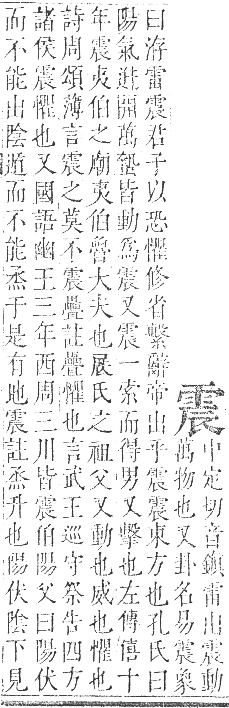 震
中定切音鎭雷出震動
萬物也又卦名易震象
曰洊雷震君子以恐懼修省繫辭帝出乎震震東方也孔氏曰
陽氣迸開萬蟄皆動爲震又震一索而得男又擊也左傳僖十
年震夷伯之廟夷伯魯大夫也展氏之祖父又動也威也懼也
詩周頌薄言震之莫不震疊註疊懼也言武王巡守祭告四方
諸侯震懼也又國語幽王三年西周三川皆震伯陽父曰陽伏
而不能出陰遁而不能烝于是有地震註烝升也陽伏陰下見